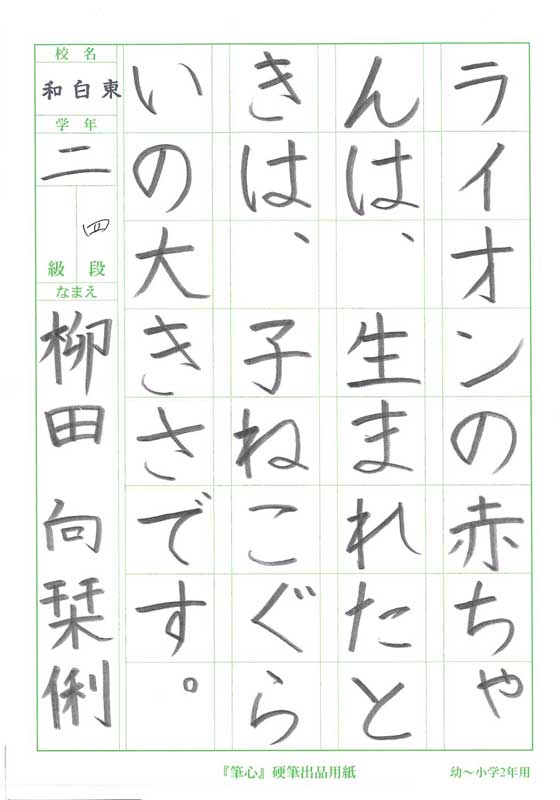 ライオンの赤ちゃ
んは、生まれたと
きは、子ねこぐら
いの大きさです。
校名
和白東
学年
二
四
級 段
なまえ
柳田 向栞俐
『筆心』硬筆出品用紙
幼〜小学2年用